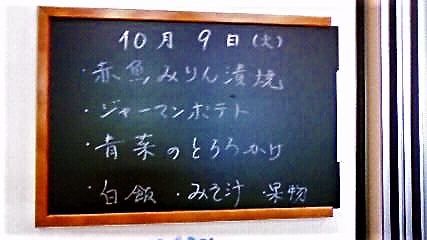 10月9日(火)
・赤魚みりん漬焼
・ジャーマンポテト
・青菜のとろろかけ
・白飯 ・みそ汁 ・果物